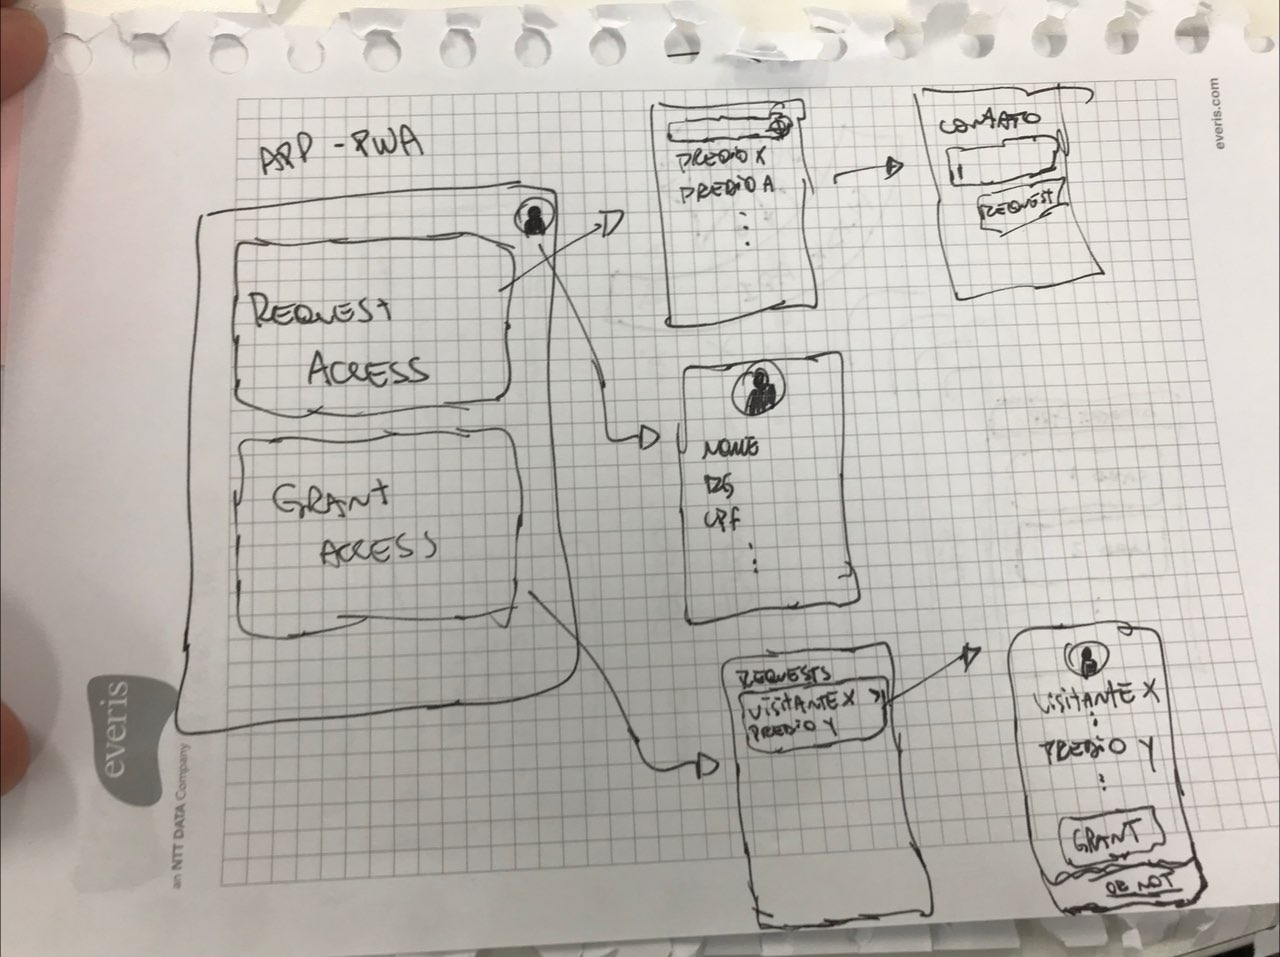 everis.com
APP - PWA
REQUEST
ACCESS
GRANT
ACCESS
PREDIO X
PREDIO A
CONTATO
REQUEST
NOME
RG
CPF
REQUESTS
VISITANTE X >
PREDIO Y
VISITANTE X
PREDIO Y
GRANT
OR NOT
everis
an NTT DATA Company